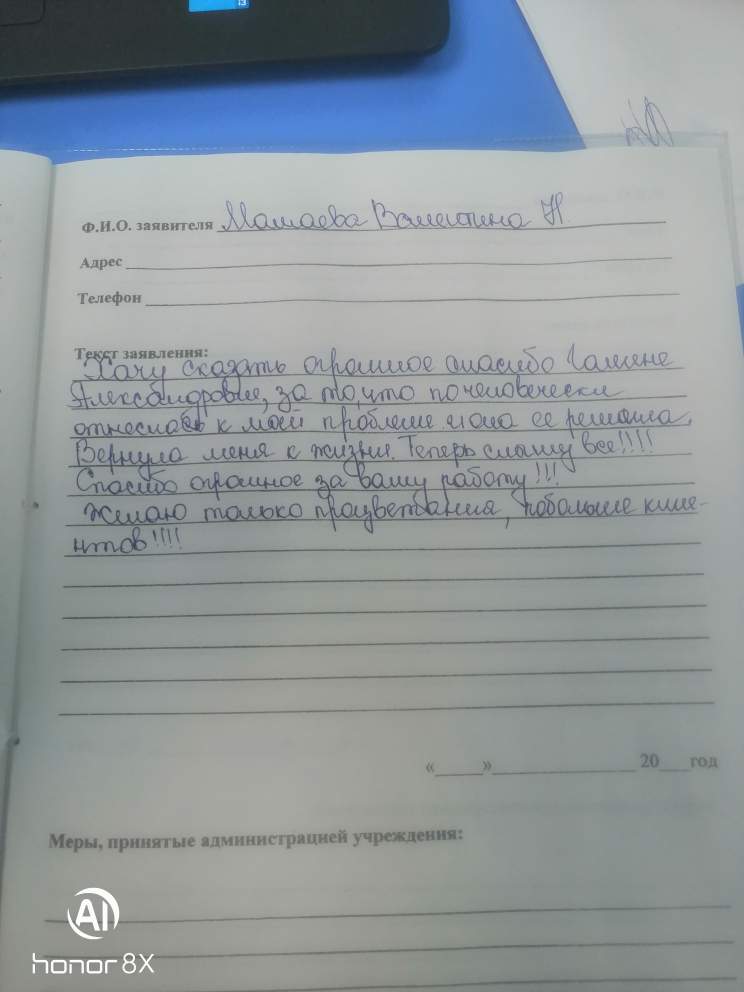 13
Ф.И.О. заявителя Машаева Валентина Н.
Адрес
Телефон
Текст заявления:
Хачу сказать огромное спасибо Галине
Александровне, за то, что почеловечески
отнеслась к моей проблеме и она ее решила.
Вернула меня к жизни. Теперь слышу все!!!!
Спасибо огромное за вашу работу!!!
Желаю только процветания, побольше клие-
нтов!!!!
«____»____________ 20___год
Меры, принятые администрацией учреждения:
AI
honor 8X